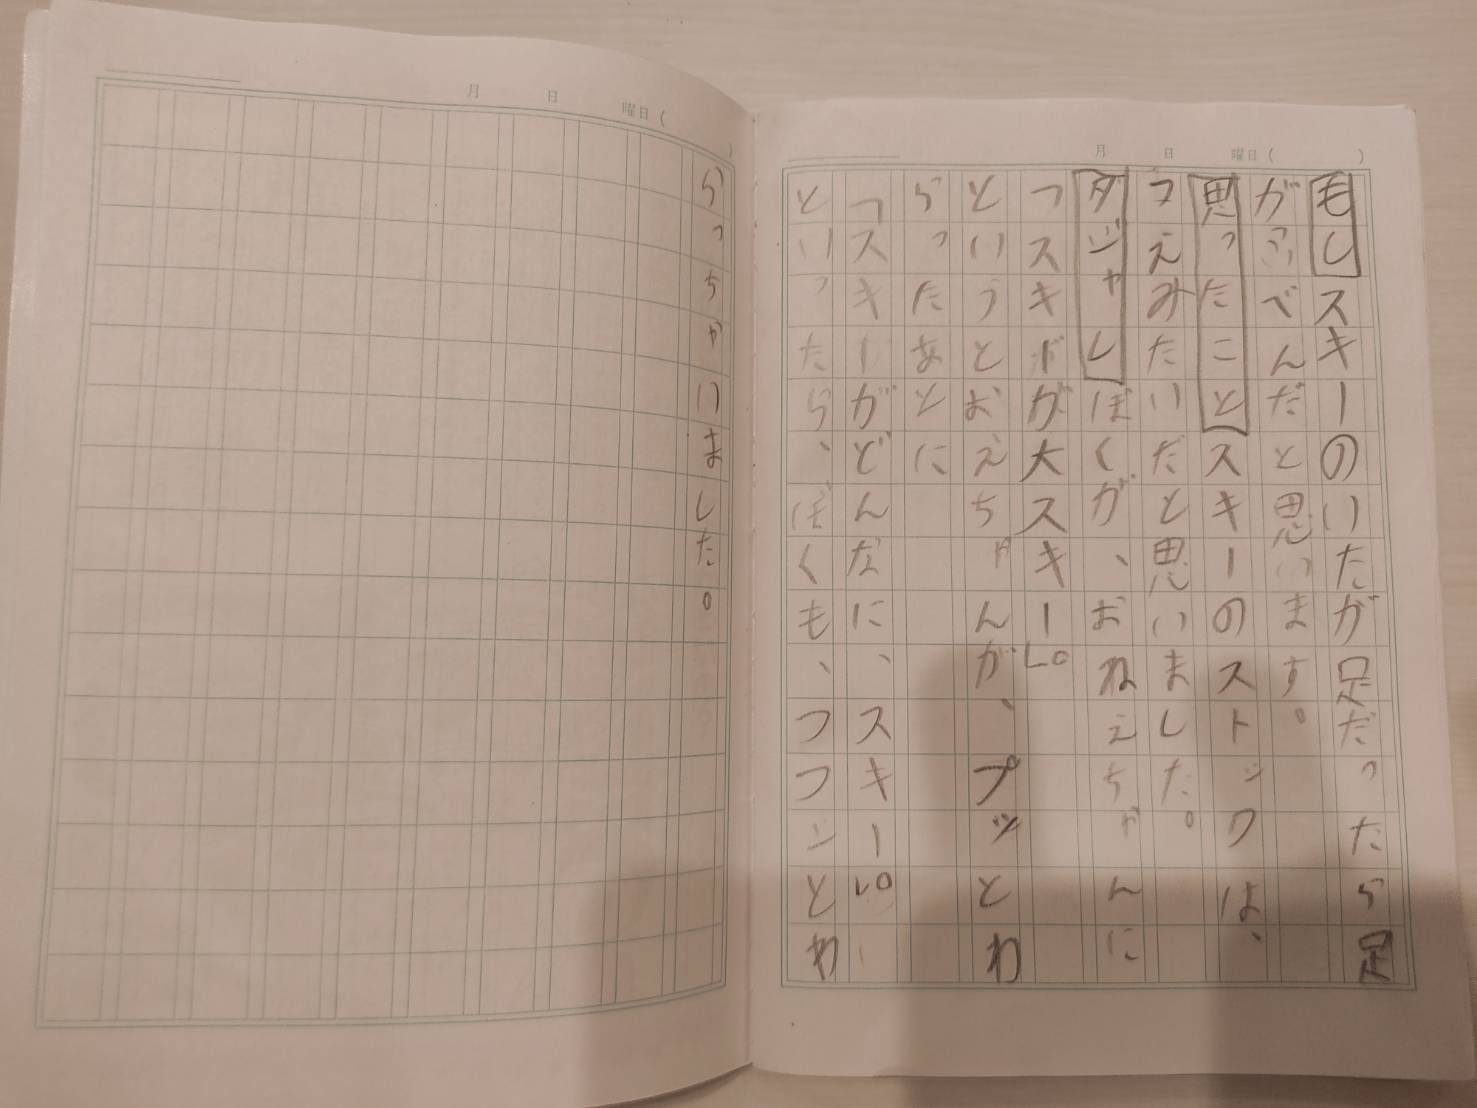 月 日 曜日( )
毛しスキーのいたが足だったら足
がふべんだと思います。
思ったことスキーのストックは、
つえみたいだと思いました。
ダジャレぼくが、おねえちゃんに
「スキーが大スキー。」
というとおえちゃんが、プッとわ
らったあとに
「スキーがどんなに、スキー。」
といったら、ぼくも、フフンとわ
月 日 曜日( )
らっちゃいました。